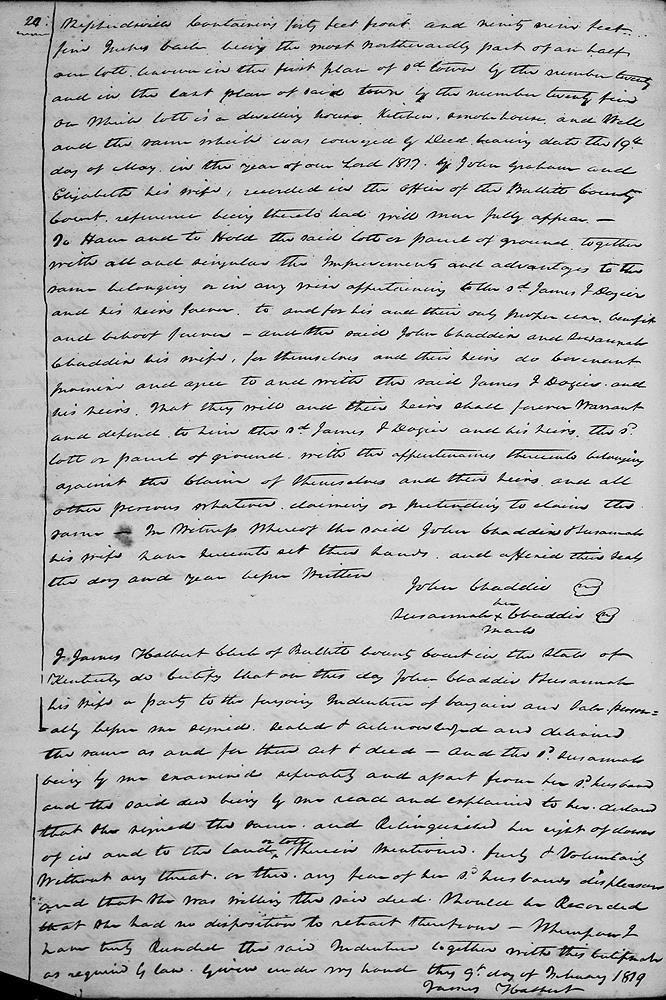 20. Shepherdsville Containing forty feet front and ninety nine feet
five Inches back being the most northwardly part of an half
acre lott. known in the first plan of sd town by the number twenty
and in the last plan of said town by the number twenty five
on which lott is a dwelling house Kitchen, smokehouse, and Well
and the same which was conveyed by Deed bearing date the 19th
day of May. in the year of our Lord 1817. by John Graham and
Elizabeth his wife, recorded in the office of the Bullitt County
Court. reference being thereto had will more fully appear. —
To Have and to Hold the said lott or parcel of ground, together
with all and singular the Improvements and advantages to the
same belonging or in any wise appertaining to the sd. James J Dozier
and his heirs forever. to and for his and their only proper use, benefit
and behoof forever — and the said John Chaddic and Susannah
Chaddic his wife, for themselves and their heirs do Covenant
promise and agree to and with the said James J Dozier. and
his heirs. that they will and their heirs shall forever Warrant
and defend. to him the sd. James J Dozier and his heirs. the sd.
lott or parcel of ground. with the appurtenances thereunto belonging
against the Claim of themselves and their heirs and all
other persons whatever. claiming or pretending to claim the
same — In Witness Whereof the said John Chaddic & Susannah
his wife have hereunto set their hands. and affixed their seals
the day and year before Written
John Chaddic
her
Susannah x Chaddic
mark
I James Halbert Clerk of Bullitt County Court in the State of
Kentucky do Certify that on this day John Chaddic & Susannah
his wife a party to the foregoing Indenture of bargain and Sale person=
ally before me signed. sealed & acknowledged and delivered
the same as and for their act & deed — And the sd. Susannah
being by me examined seperately and apart from her sd. husband
and the said deed being by me read and explained to her. declared
that she signed the same. and Relinquished her right of dower
of in and to the land or lott therein mentioned. freely & Voluntarily
Without any threat. or the. any fear of her sd. husbands displeasure
and that she was willing the said deed. Should be Recorded
that she had no disposition to retract therefrom — Whereupon I
have truly Recorded the said Indenture together with this Certificate
as required by law. Given under my hand this 9th. day of February 1819
James Halbert